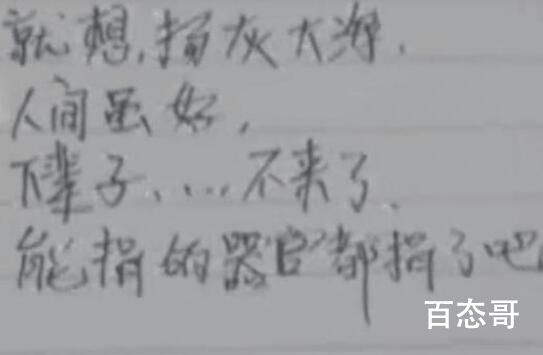 就想,扬灰大海.
人间虽好,
下辈子....不来了.
能捐的器官都捐了吧
百态哥